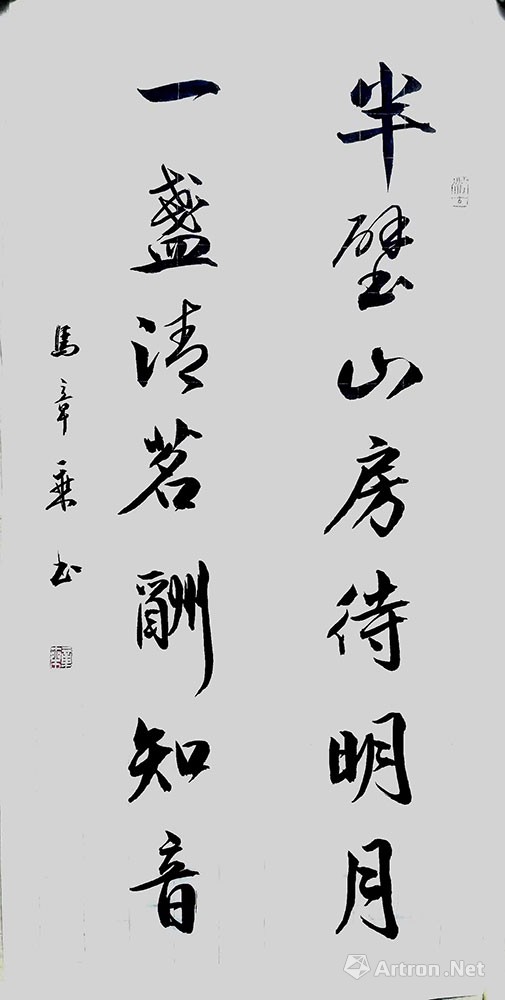 半壁山房待明月
一盏清茗酬知音
馬章乗书
Artron.Net